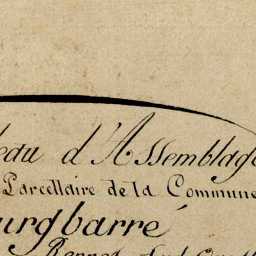 eau d'Assemblage
Parcellaire de la Commune
urgbarré